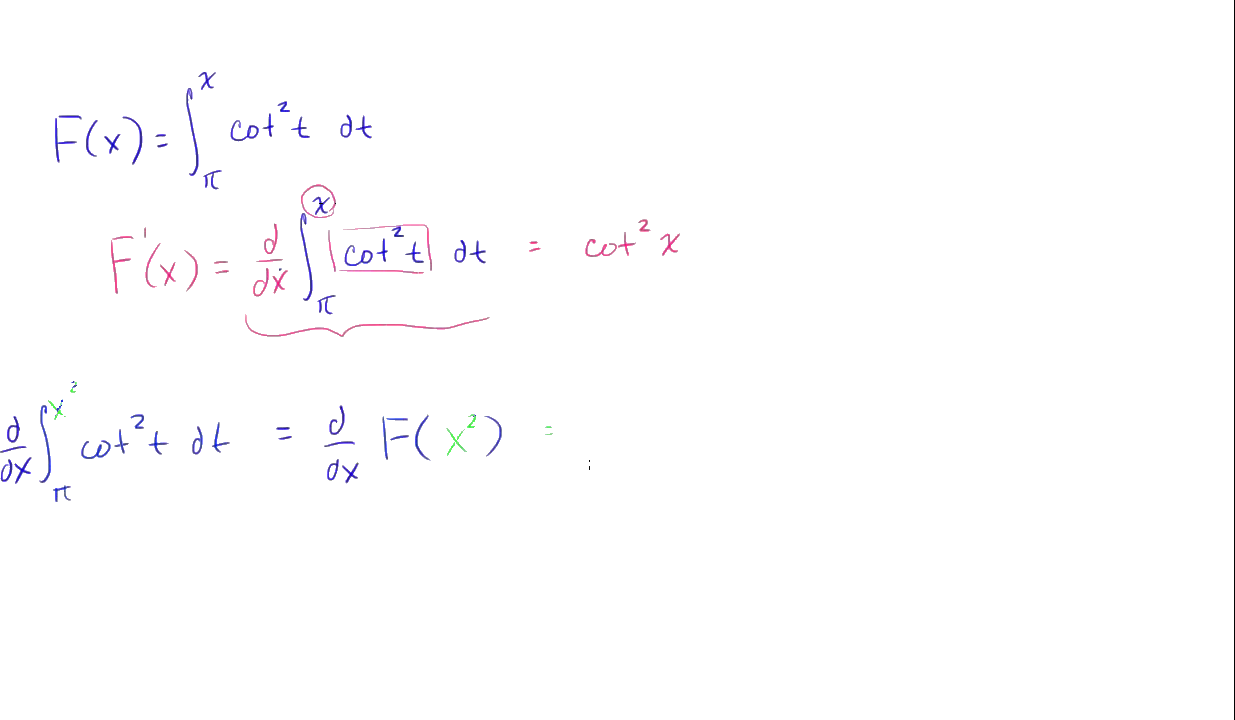 F(x) = ∫_π^x cot²t dt
F'(x) = d/dx ∫_π^x cot²t dt = cot² x
d/dx ∫_π^x² cot²t dt = d/dx F(x²) =